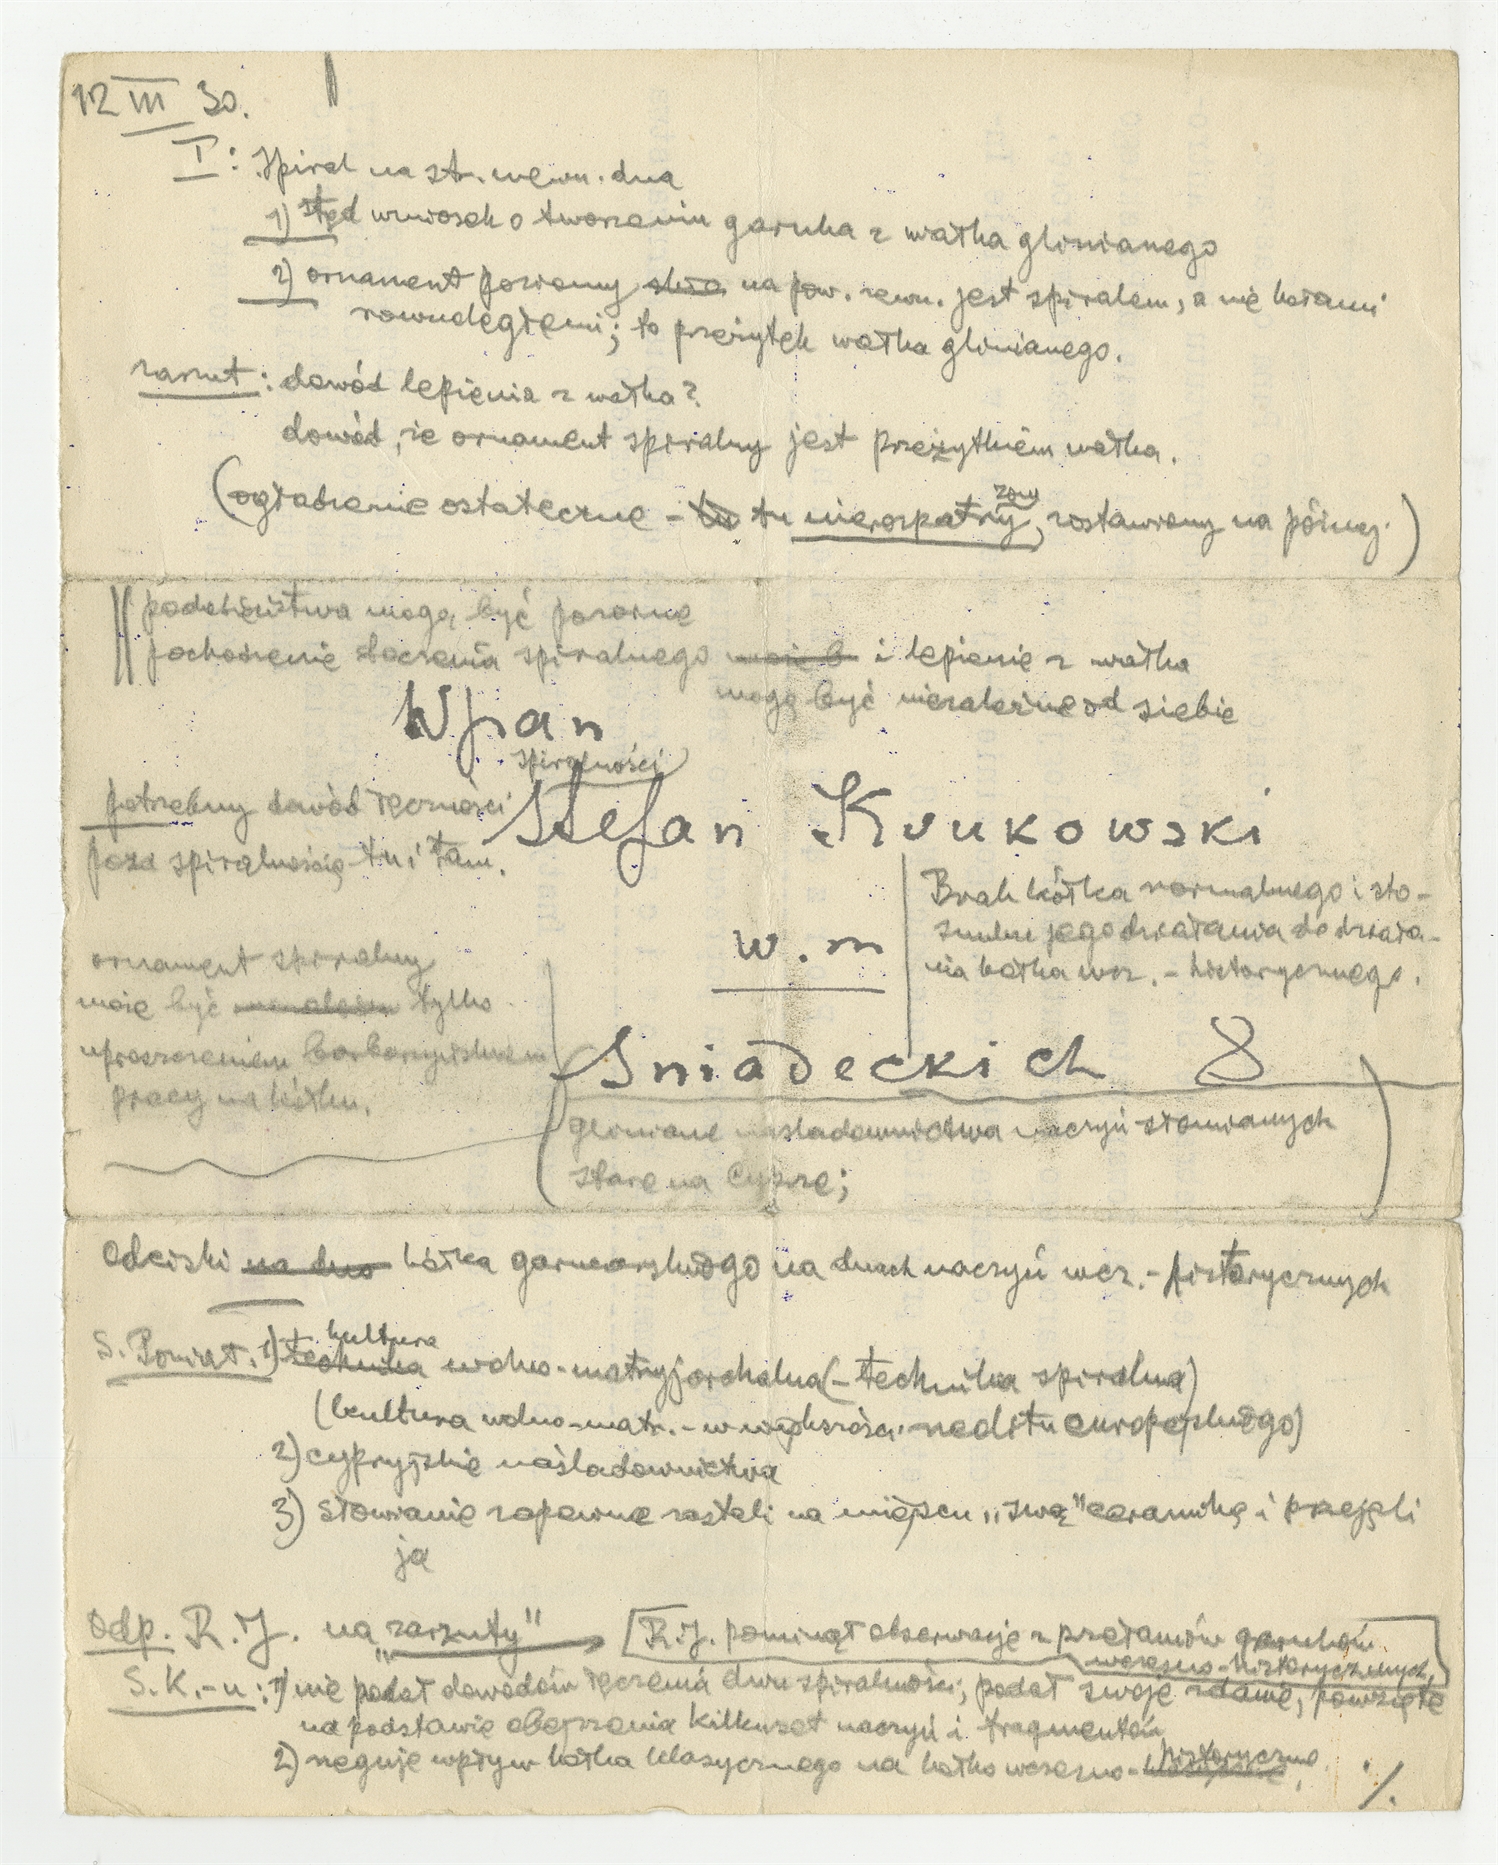 12 III 30.
I: Spiral na str. wewn. dna
1) stąd wniosek o tworzeniu garnka z wałka glinianego
2) ornament poziomy na pow. zewn. jest spiralem, a nie kołami
równoległemi; to przeżytek wałka glinianego.
zarzut: dowód lepienia z wałka?
dowód, że ornament spiralny jest przeżytkiem wałka.
zony
(ogładzenie ostateczne - tu nierozpatrzy, zostawiony na później)
podobieństwa mogą być pozorne
pochodzenie złoczenia spiralnego może b i lepienie z wałka
mogą być niezależne od siebie
WPan
spiralności
potrzebny dowód łączności
Stefan Krukowski
poza spiralnością tu i tam.
Brak kółka normalnego i sto-
sunku jego działania do działa-
nia kółka wcz. - historycznego.
w. m
ornament spiralny
może być tylko
uproszczeniem barbarzyńskiem
pracy na kółku.
Sniadeckich 8
(gliniane naśladownictwa naczyń słomianych
stare na Cyprze;)
Odciski na dno kółka garncarskiego na dnach naczyń wcz. - historycznych
kultura
S. Poniat. 1) technika wolno-matryjarchalna (- technika spiralna)
(kultura wolno-matr. - w większości neolitu europejskiego)
2) cypryjskie naśladownictwa
3) słowianie zapewne zastali na miejscu „swą" ceramikę i przejęli
ją
Odp. R. J. na „zarzuty" [R. J. pominął obserwacje z przełamów garnków
wczesno-historycznych]
S. K. - u: 1) nie podał dowodów łączenia dwu spiralności; podał swoje zdanie, powzięte
na podstawie obejrzenia kilkuset naczyń i fragmentów
2) neguje wpływ kółka klasycznego na kółko wczesno-historyczne.
./.